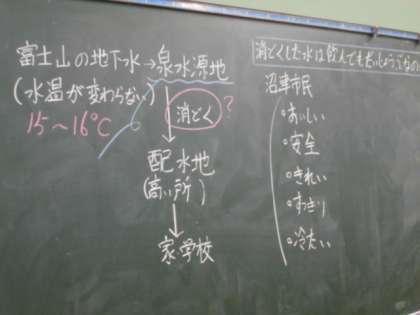 富士山の地下水→泉水源地
(水温が変わらない)
15～16℃
消どく?
配水地
(高い所)
家学校
消どくした水は飲んでもだいじょうぶなの
沼津市民
・おいしい
・安全
・きれい
・すっきり
・冷たい